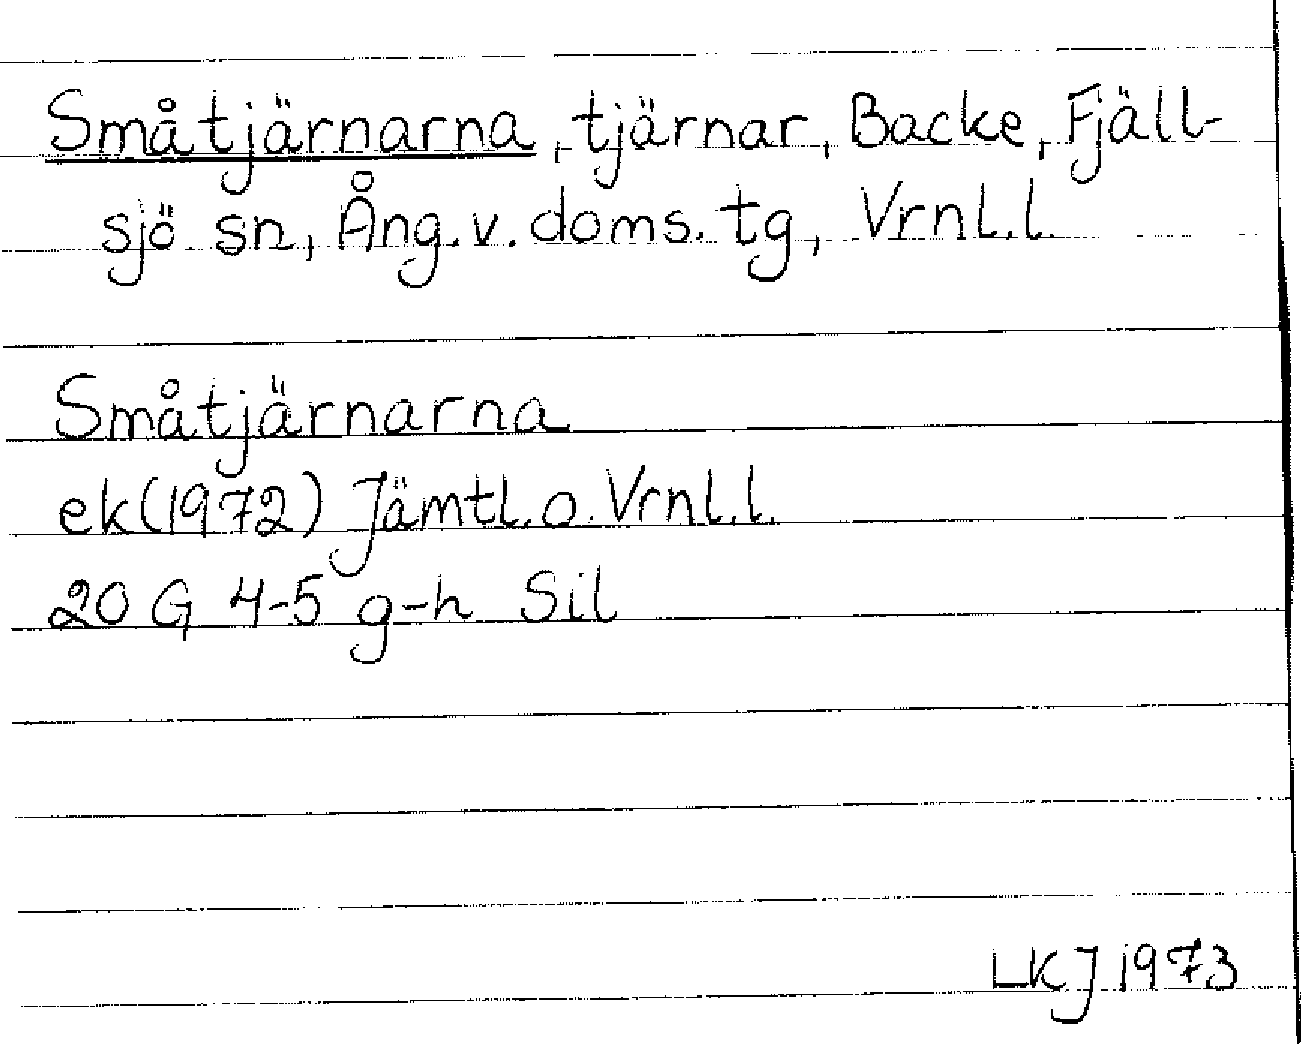 Småtjärnarna, tjärnar, Backe, Fjäll-
sjö sn, Ång.v. doms. tg, Vrnl.l.
Småtjärnarna
ek (1972) Jämtl. o. Vrnl.l.
20 G 4-5 g-h Sil
LKJ 1973